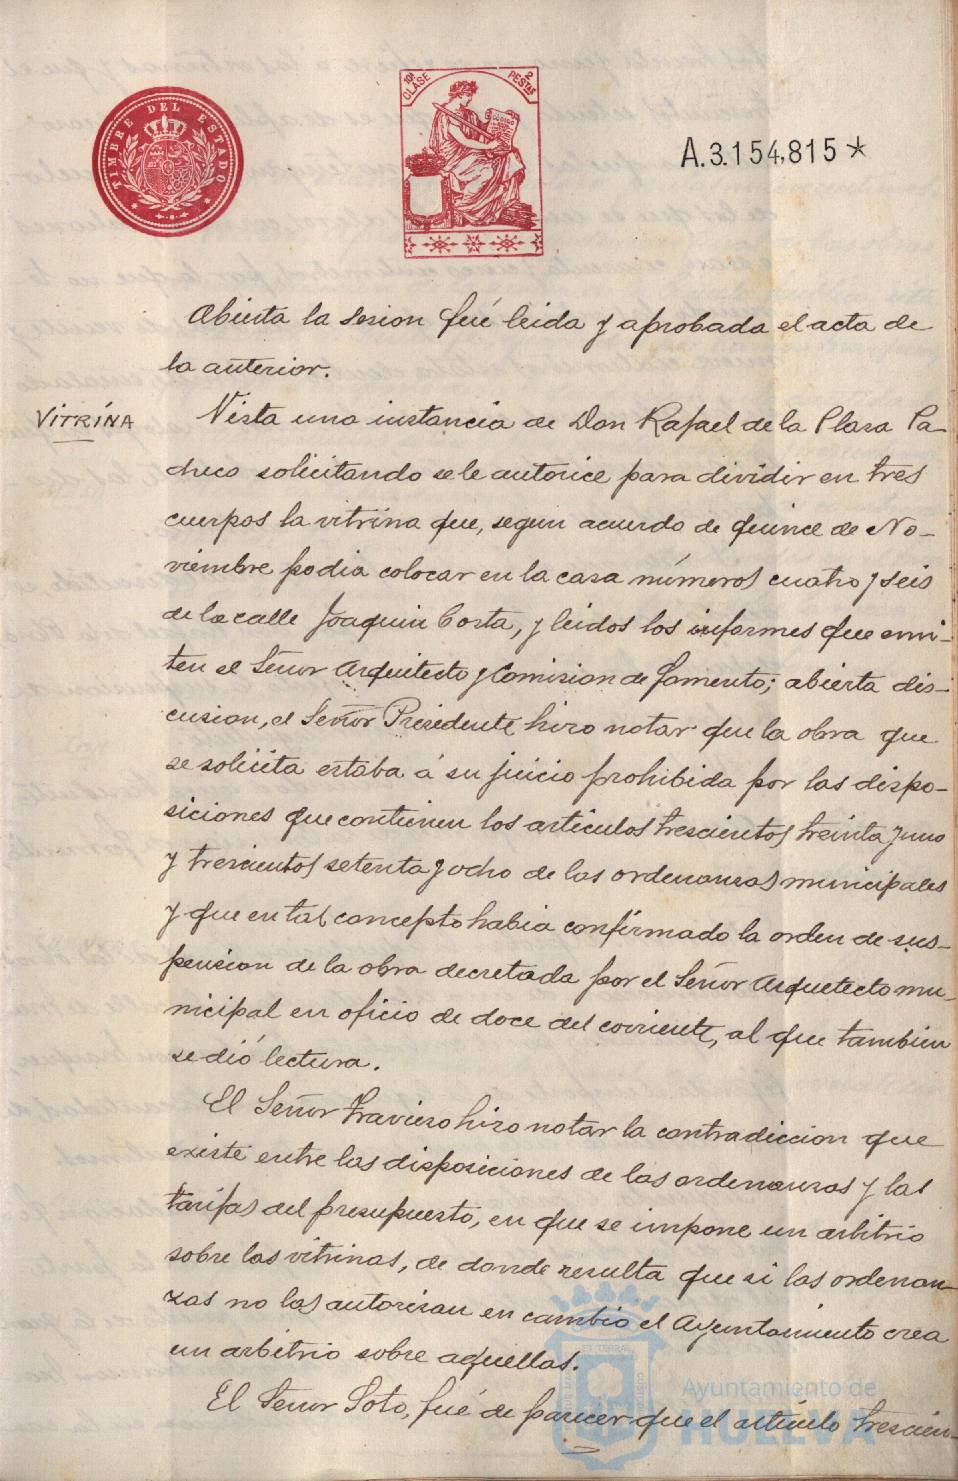 TIMBRE DEL ESTADO
10ª CLASE
2 PESTAS
A.3.154,815*
Abierta la sesion fué leida y aprobada el acta de
la anterior.
VITRINA
Vista una instancia de Don Rafael de la Plasa Pa-
checo solicitando se le autorice para dividir en tres
cuerpos la vitrina que, segun acuerdo de quince de No-
viembre podia colocar en la casa números cuatro y seis
de la calle Joaquin Costa, y leidos los informes que emi-
ten el Señor Arquitecto y Comision de Fomento; abierta dis-
cusion, el Señor Presidente hiso notar que la obra que
se solicita estaba á su juicio prohibida por las dispo-
siciones que contienen los articulos trescientos treinta y uno
y trescientos setenta y ocho de las ordenansas municipales
y que en tal concepto habia confirmado la orden de sus-
pension de la obra decretada por el Señor Arquetecto mu-
nicipal en oficio de doce del corriente, al que tambien
se dió lectura.
El Señor Travieso hiso notar la contradiccion que
existe entre las disposiciones de las ordenansas y las
tarifas del presupuesto, en que se impone un arbitrio
sobre las vitrinas, de donde resulta que si las ordenan-
zas no las autorisan en cambio el Ayuntamiento crea
un arbitrio sobre aquellas.
El Señor Soto, fué de parecer que el articulo trescien-
Ayuntamiento de
HUELVA